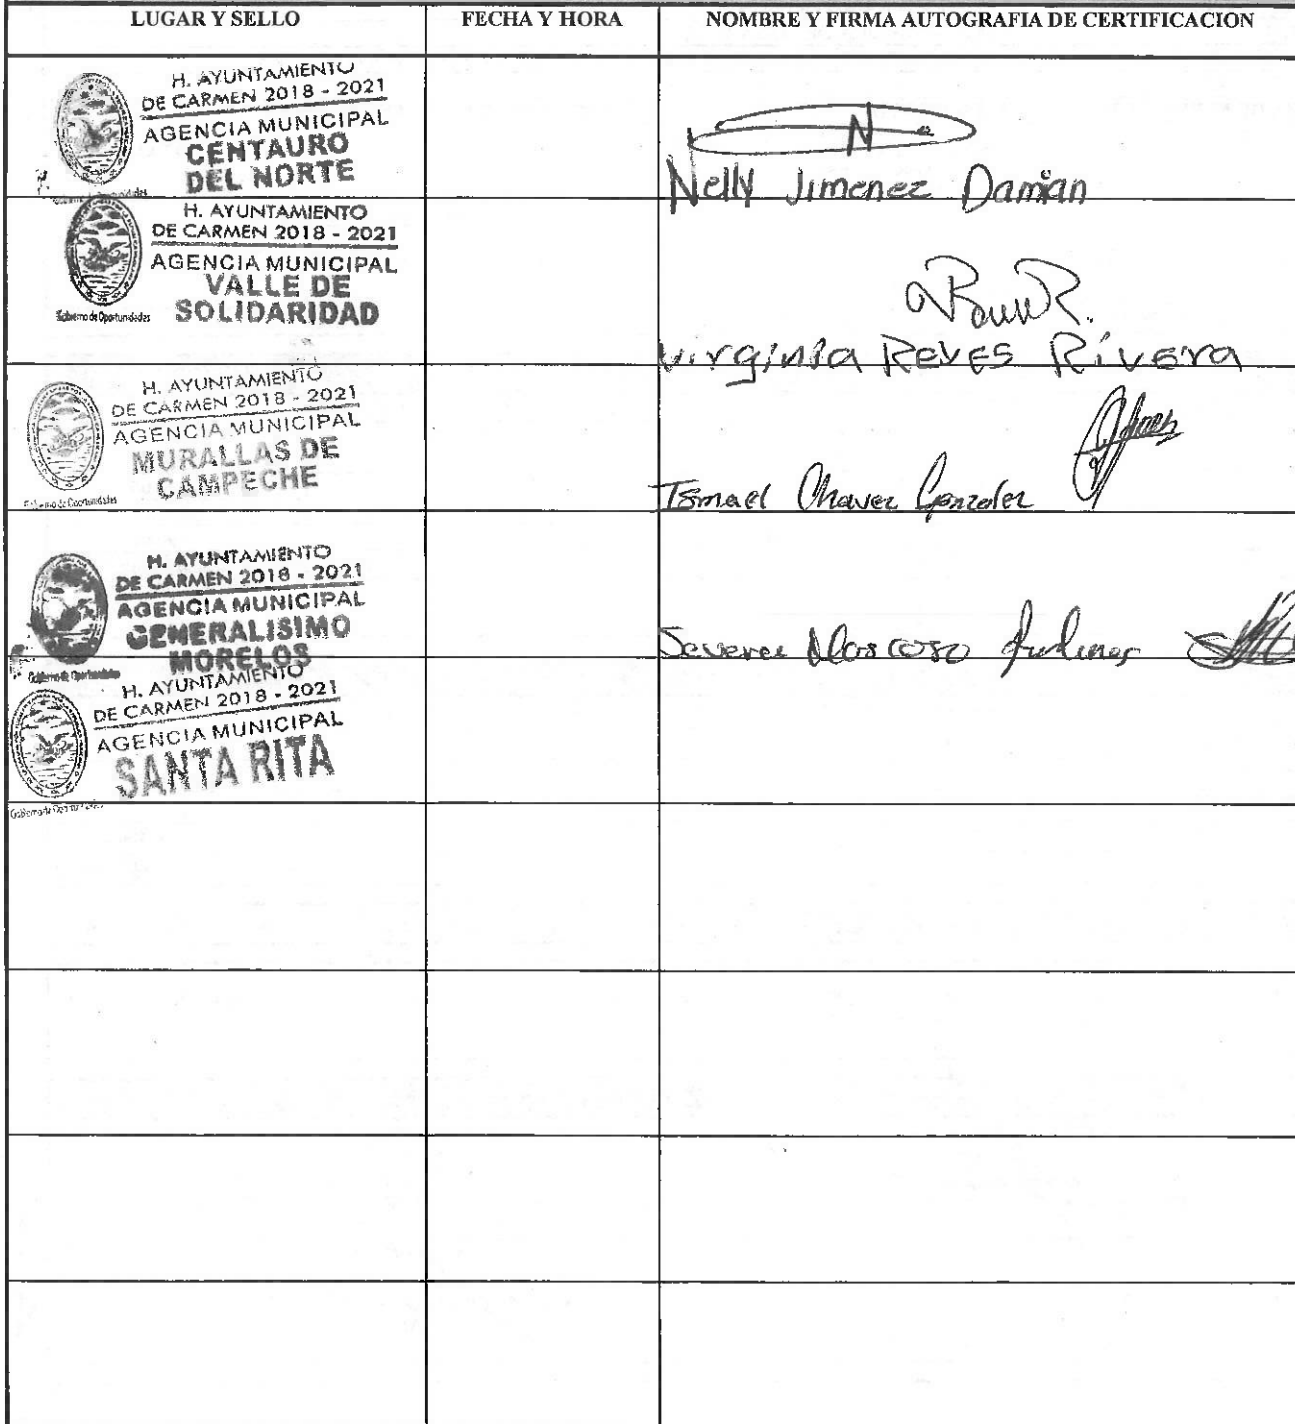 LUGAR Y SELLO
FECHA Y HORA
NOMBRE Y FIRMA AUTOGRAFIA DE CERTIFICACION
H. AYUNTAMIENTO
DE CARMEN 2018 - 2021
AGENCIA MUNICIPAL
CENTAURO
DEL NORTE
N
Nelly Jimenez Damian
H. AYUNTAMIENTO
DE CARMEN 2018 - 2021
AGENCIA MUNICIPAL
VALLE DE
SOLIDARIDAD
Gobierno de Oportunidades
Virginia REYES Rivera
H. AYUNTAMIENTO
DE CARMEN 2018 - 2021
AGENCIA MUNICIPAL
MURALLAS DE
CAMPECHE
Gobierno de Oportunidades
Ismael Chavez Gonzalez
H. AYUNTAMIENTO
DE CARMEN 2018 - 2021
AGENCIA MUNICIPAL
GENERALISIMO
MORELOS
Gobierno de Oportunidades
Moscoso
H. AYUNTAMIENTO
DE CARMEN 2018 - 2021
AGENCIA MUNICIPAL
SANTA RITA